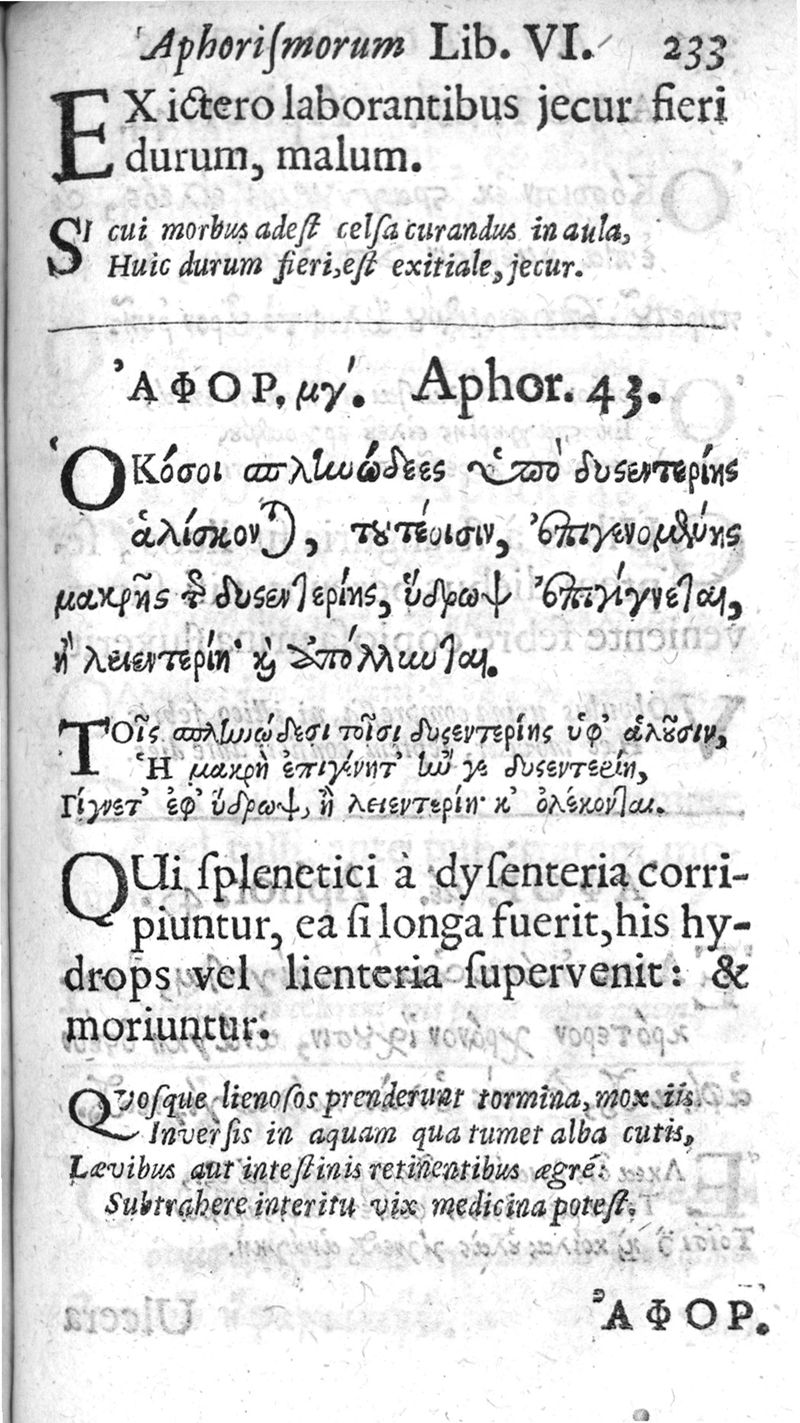 Aphoriſmorum Lib. VI. 233
EX ictero laborantibus jecur fieri
durum, malum.
SI cui morbus adeſt celſa curandus in aula,
Huic durum fieri, eſt exitiale, jecur.
ἈΦΟΡ. μγʹ. Aphor. 43.
ὉΚόσοι σπληνώδεες ὑπὸ δυσεντερίης
ἁλίσκονται, τουτέοισιν, ἐπιγενομένης
μακρῆς τῆς δυσεντερίης, ὕδρωψ ἐπιγίγνεται,
ἢ λειεντερίη· καὶ ἀπόλλυνται.
ΤΟῖς σπληνώδεσι τοῖσι δυσεντερίης ὑφ' ἁλοῦσιν,
Ἢ μακρὴ ἐπιγένητ' ἢν γε δυσεντερίη,
Γίγνετ' ἐφ' ὕδρωψ, ἢ λειεντερίη· κ' ὀλέκονται.
QUi ſplenetici à dyſenteria corri-
piuntur, ea ſi longa fuerit, his hy-
drops vel lienteria ſupervenit: &
moriuntur.
QVoſque lienoſos prenderunt tormina, mox iis
Inverſis in aquam qua tumet alba cutis,
Lævibus aut inteſtinis retinentibus ægrè:
Subtrahere interitu vix medicina poteſt.
ἈΦΟΡ.